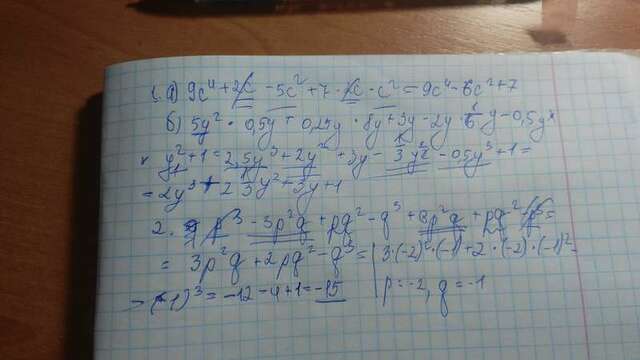 1. а) 9c⁴ + 2c - 5c² + 7 - 2c - c² = 9c⁴ - 6c² + 7
б) 5y² · 0,5y + 0,25y · 8y + 3y - 2y · y - 0,5y ×
× y² + 1 = 2,5y³ + 2y² + 3y - 3y² - 0,5y³ + 1 =
= 2y³ + 3y + 1
2. p³ - 3p²q + pq² - q³ + p²q + pq² - p³ =
= 3p²q + 2pq² - q³ = | 3·(-2)²·(-1) + 2·(-2)·(-1)² -
- (-1)³ = -12 - 4 + 1 = -15 | p = -2, q = -1